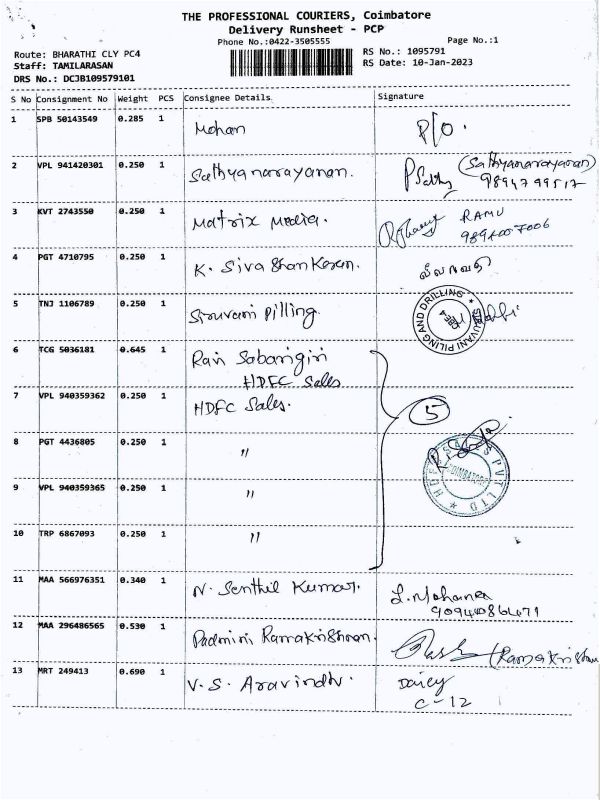 THE PROFESSIONAL COURIERS, Coimbatore
Delivery Runsheet - PCP
Phone No.:0422-3505555 Page No.:1
Route: BHARATHI CLY PC4 RS No.: 1095791
Staff: TAMILARASAN RS Date: 10-Jan-2023
DRS No.: DCJB109579101
S No Consignment No Weight PCS Consignee Details Signature
1 SPB 50143549 0.285 1 Mohan P/O.
2 VPL 941420301 0.250 1 Sathyanarayanan. (Sathyanarayanan)
3 KVT 2743550 0.250 1 Matrix Media. RAMU
4 PGT 4710795 0.250 1 K. Siva Shankaran.
5 TNJ 1106789 0.250 1 Siruvani Pilling
SIRUVANI PILING AND DRILLING
CBE4
6 TCG 5036181 0.645 1 Ravi Sabarigiri
HDFC Sales
7 VPL 940359362 0.250 1 HDFC Sales. 5
8 PGT 4436805 0.250 1 "
HDFC SALES PVT LTD
COIMBATORE
9 VPL 940359365 0.250 1 "
10 TRP 6867093 0.250 1 "
11 MAA 566976351 0.340 1 N. Senthil Kumar. L. Mohana
12 MAA 296486565 0.530 1 Padmini Ramakrishnan.
13 MRT 249413 0.690 1 V. S. Aravindh. Daicy
C-12